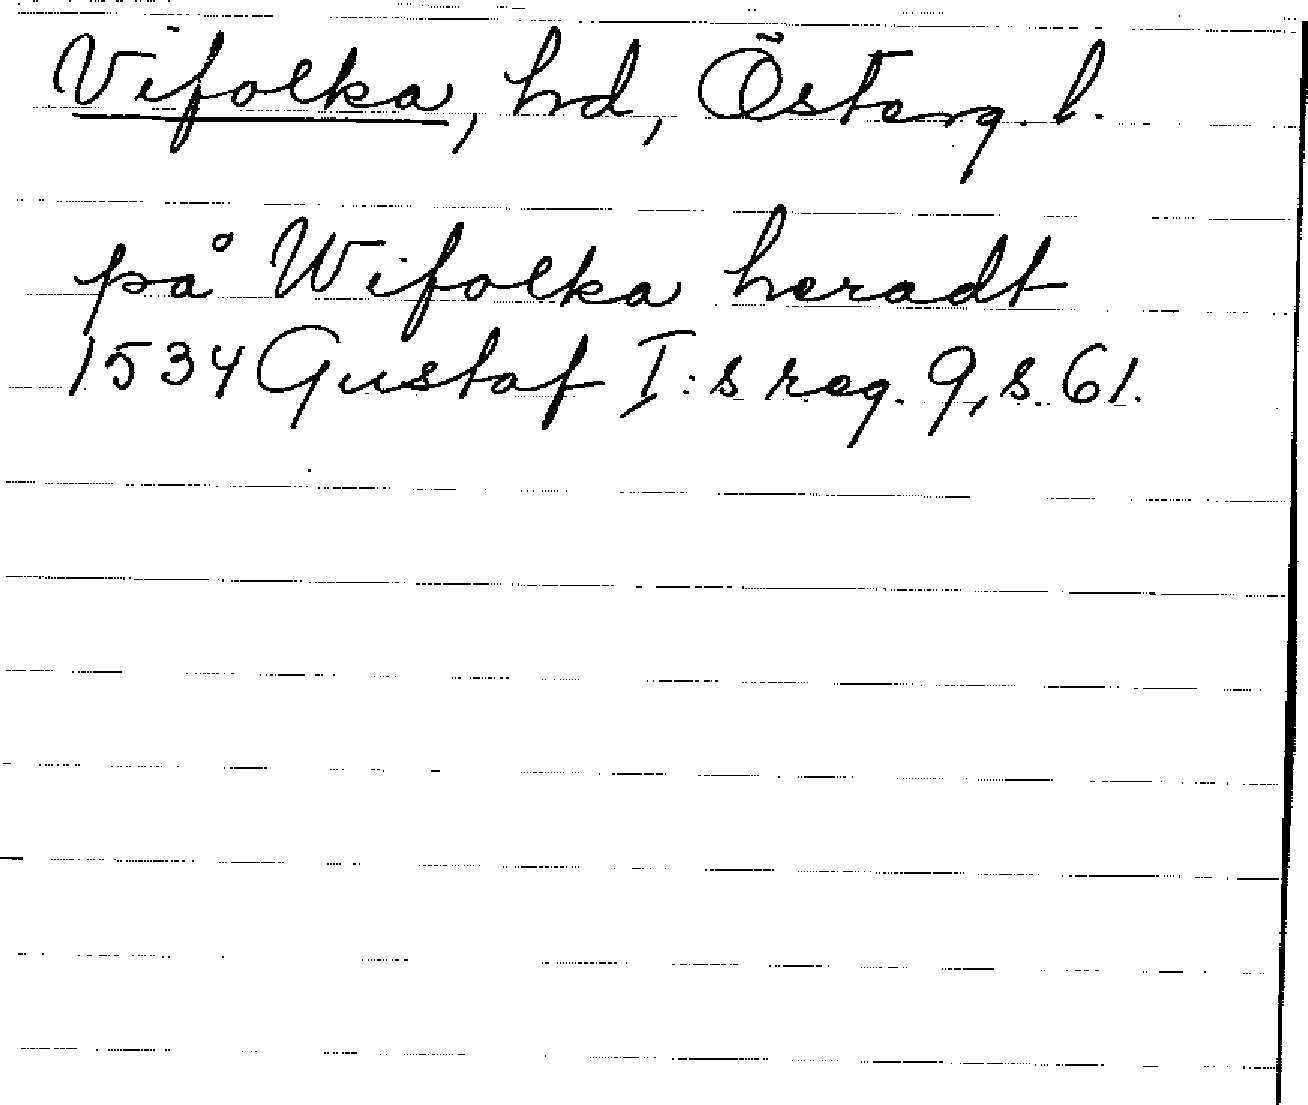 Vifolka, hd, Österg. l.
på Wifolka heradt
1534 Gustaf I:s reg. 9, s. 61.